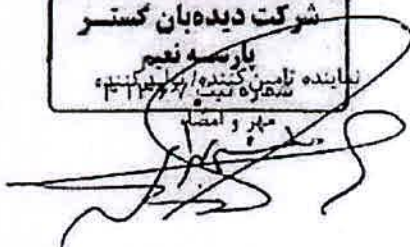 شرکت دیده‌بان گستر
پارسه نعیم
نماینده تامین کننده/ تولیدکننده
شماره ثبت
مهر و امضاء